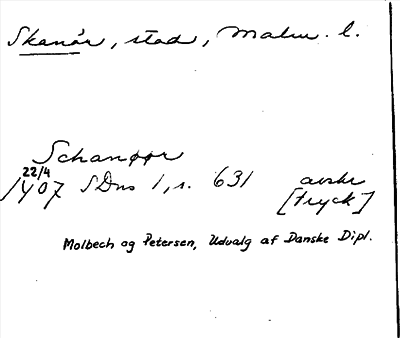 Skanör, stad, Malm. l.
Schanøør
22/4
1407 SDns 1, s. 631 avskr
[tryck]
Molbech og Petersen, Udvalg af Danske Dipl.